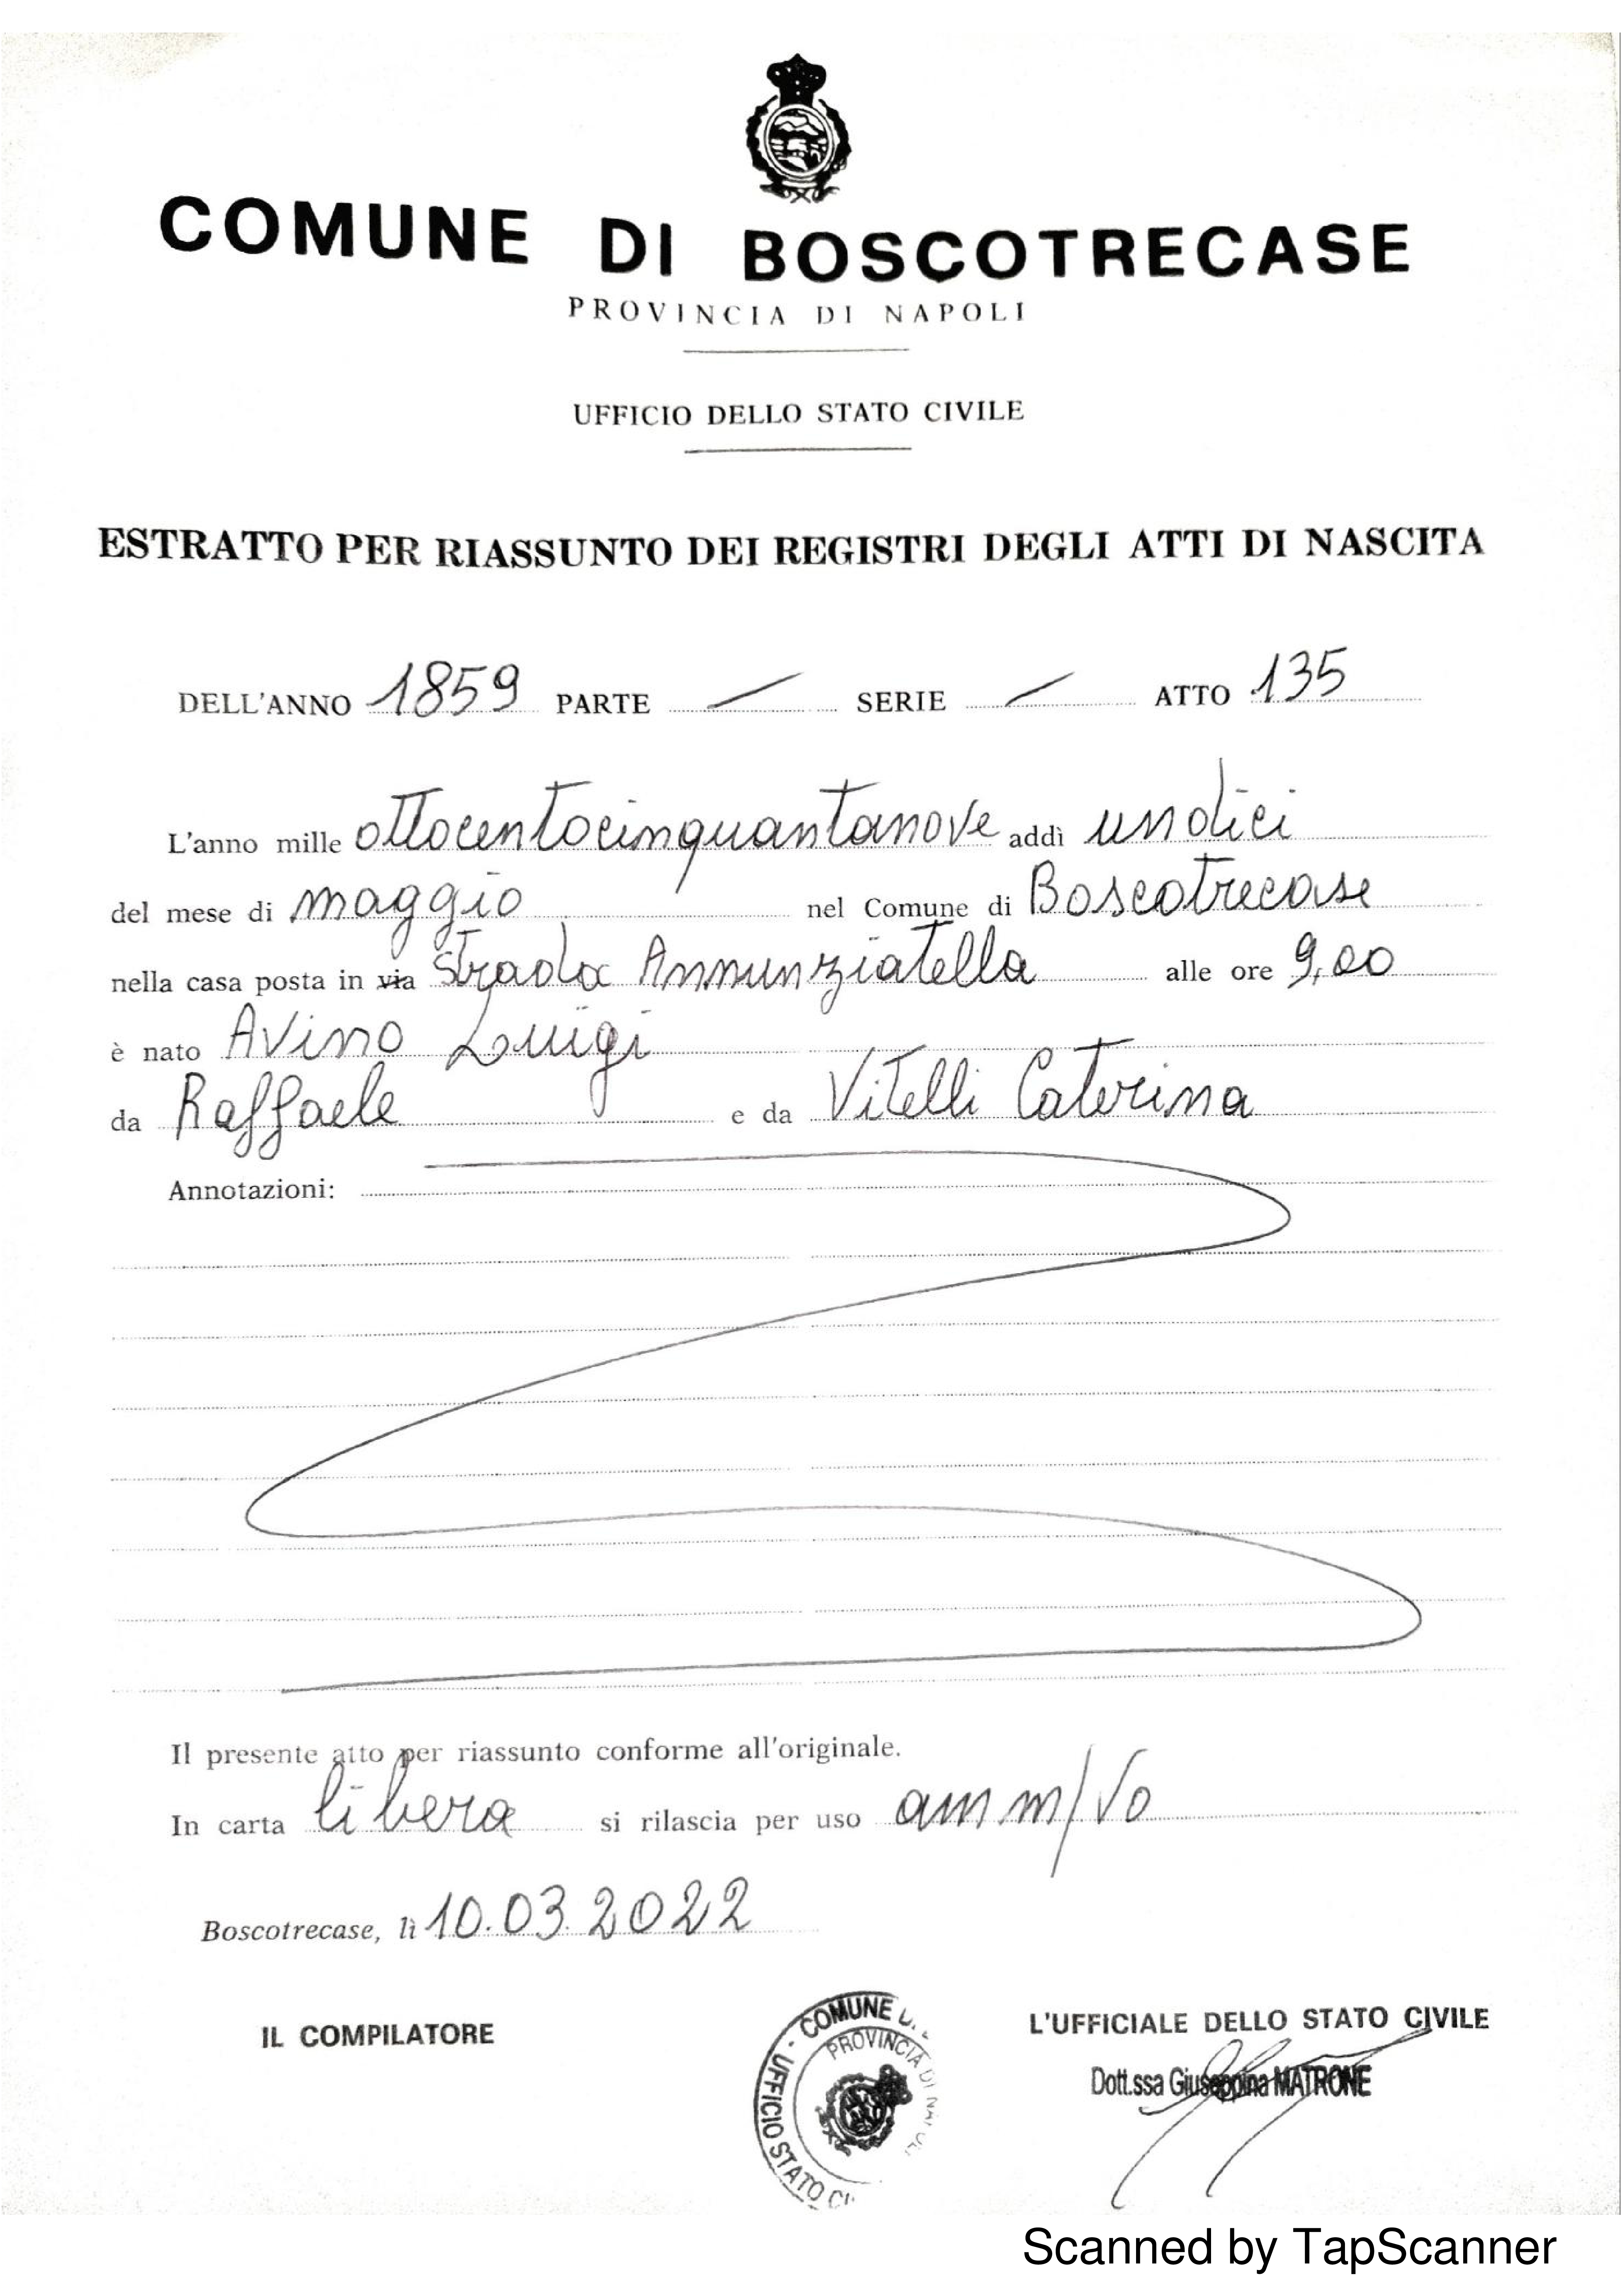 COMUNE DI BOSCOTRECASE
PROVINCIA DI NAPOLI
UFFICIO DELLO STATO CIVILE
ESTRATTO PER RIASSUNTO DEI REGISTRI DEGLI ATTI DI NASCITA
DELL'ANNO 1859 PARTE / SERIE / ATTO 135
L'anno mille ottocentocinquantanove addì undici
del mese di maggio nel Comune di Boscotrecase
nella casa posta in via Strada Annunziatella alle ore 9,00
è nato Avino Luigi
da Raffaele e da Vitelli Caterina
Annotazioni:
Il presente atto per riassunto conforme all'originale.
In carta libera si rilascia per uso amm/vo
Boscotrecase, lì 10.03.2022
IL COMPILATORE
L'UFFICIALE DELLO STATO CIVILE
Dott.ssa Giuseppina MATRONE
COMUNE
PROVINCIA DI NAPOLI
UFFICIO STATO
Scanned by TapScanner